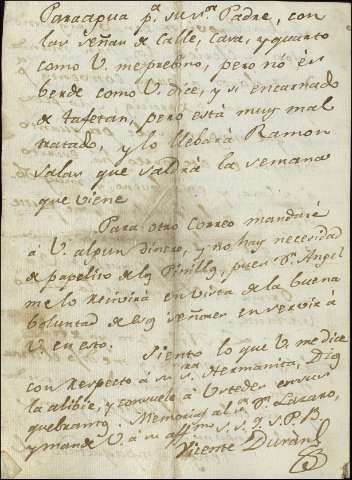 Paracagua p.a su s.or Padre, con
las señas de calle, casa, y quarto
como V. me previno, pero no és
berde como V. dice, y si encarnado
de tafetan, pero está muy mal
tratado, y lo llebará Ramon
Salas que saldrá la semana
que viene
Para otro Correo mandaré
á V. algun dinero, y no hay necesidad
de papelito de los Pinillos, pues D.n Angel
me lo recivirá en vista de la buena
voluntad de esos señores en servir á
V. en esto.
Siento lo que V. me dice
con respecto á su s.ra Hermanita, Dios
la alibie, y consuele á Ustedes en sus
quebrantos. Memorias al s.or D.n Lazaro,
y mande V. á su affmo S. S. Q. S. M. B.
Vicente Duran